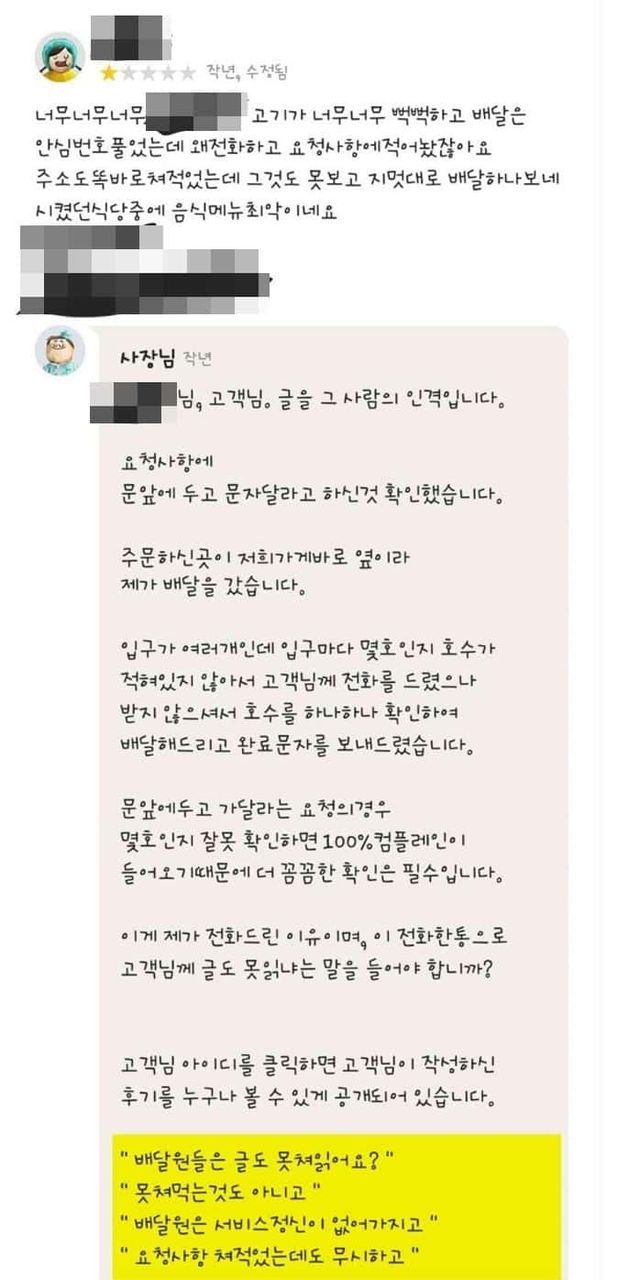 작년, 수정됨
너무너무너무 고기가 너무너무 뻑뻑하고 배달은
안심번호풀었는데 왜전화하고 요청사항에적어놨잖아요
주소도똑바로쳐적었는데 그것도 못보고 지멋대로 배달하나보네
시켰던식당중에 음식메뉴최악이네요
사장님 작년
님, 고객님. 글을 그 사람의 인격입니다.
요청사항에
문앞에 두고 문자달라고 하신것 확인했습니다.
주문하신곳이 저희가게바로 옆이라
제가 배달을 갔습니다.
입구가 여러개인데 입구마다 몇호인지 호수가
적혀있지 않아서 고객님께 전화를 드렸으나
받지 않으셔서 호수를 하나하나 확인하여
배달해드리고 완료문자를 보내드렸습니다.
문앞에두고 가달라는 요청의경우
몇호인지 잘못 확인하면 100%컴플레인이
들어오기때문에 더 꼼꼼한 확인은 필수입니다.
이게 제가 전화드린 이유이며, 이 전화한통으로
고객님께 글도 못읽냐는 말을 들어야 합니까?
고객님 아이디를 클릭하면 고객님이 작성하신
후기를 누구나 볼 수 있게 공개되어 있습니다.
" 배달원들은 글도 못쳐읽어요? "
" 못쳐먹는것도 아니고 "
" 배달원은 서비스정신이 없어가지고 "
" 요청사항 쳐적었는데도 무시하고 "